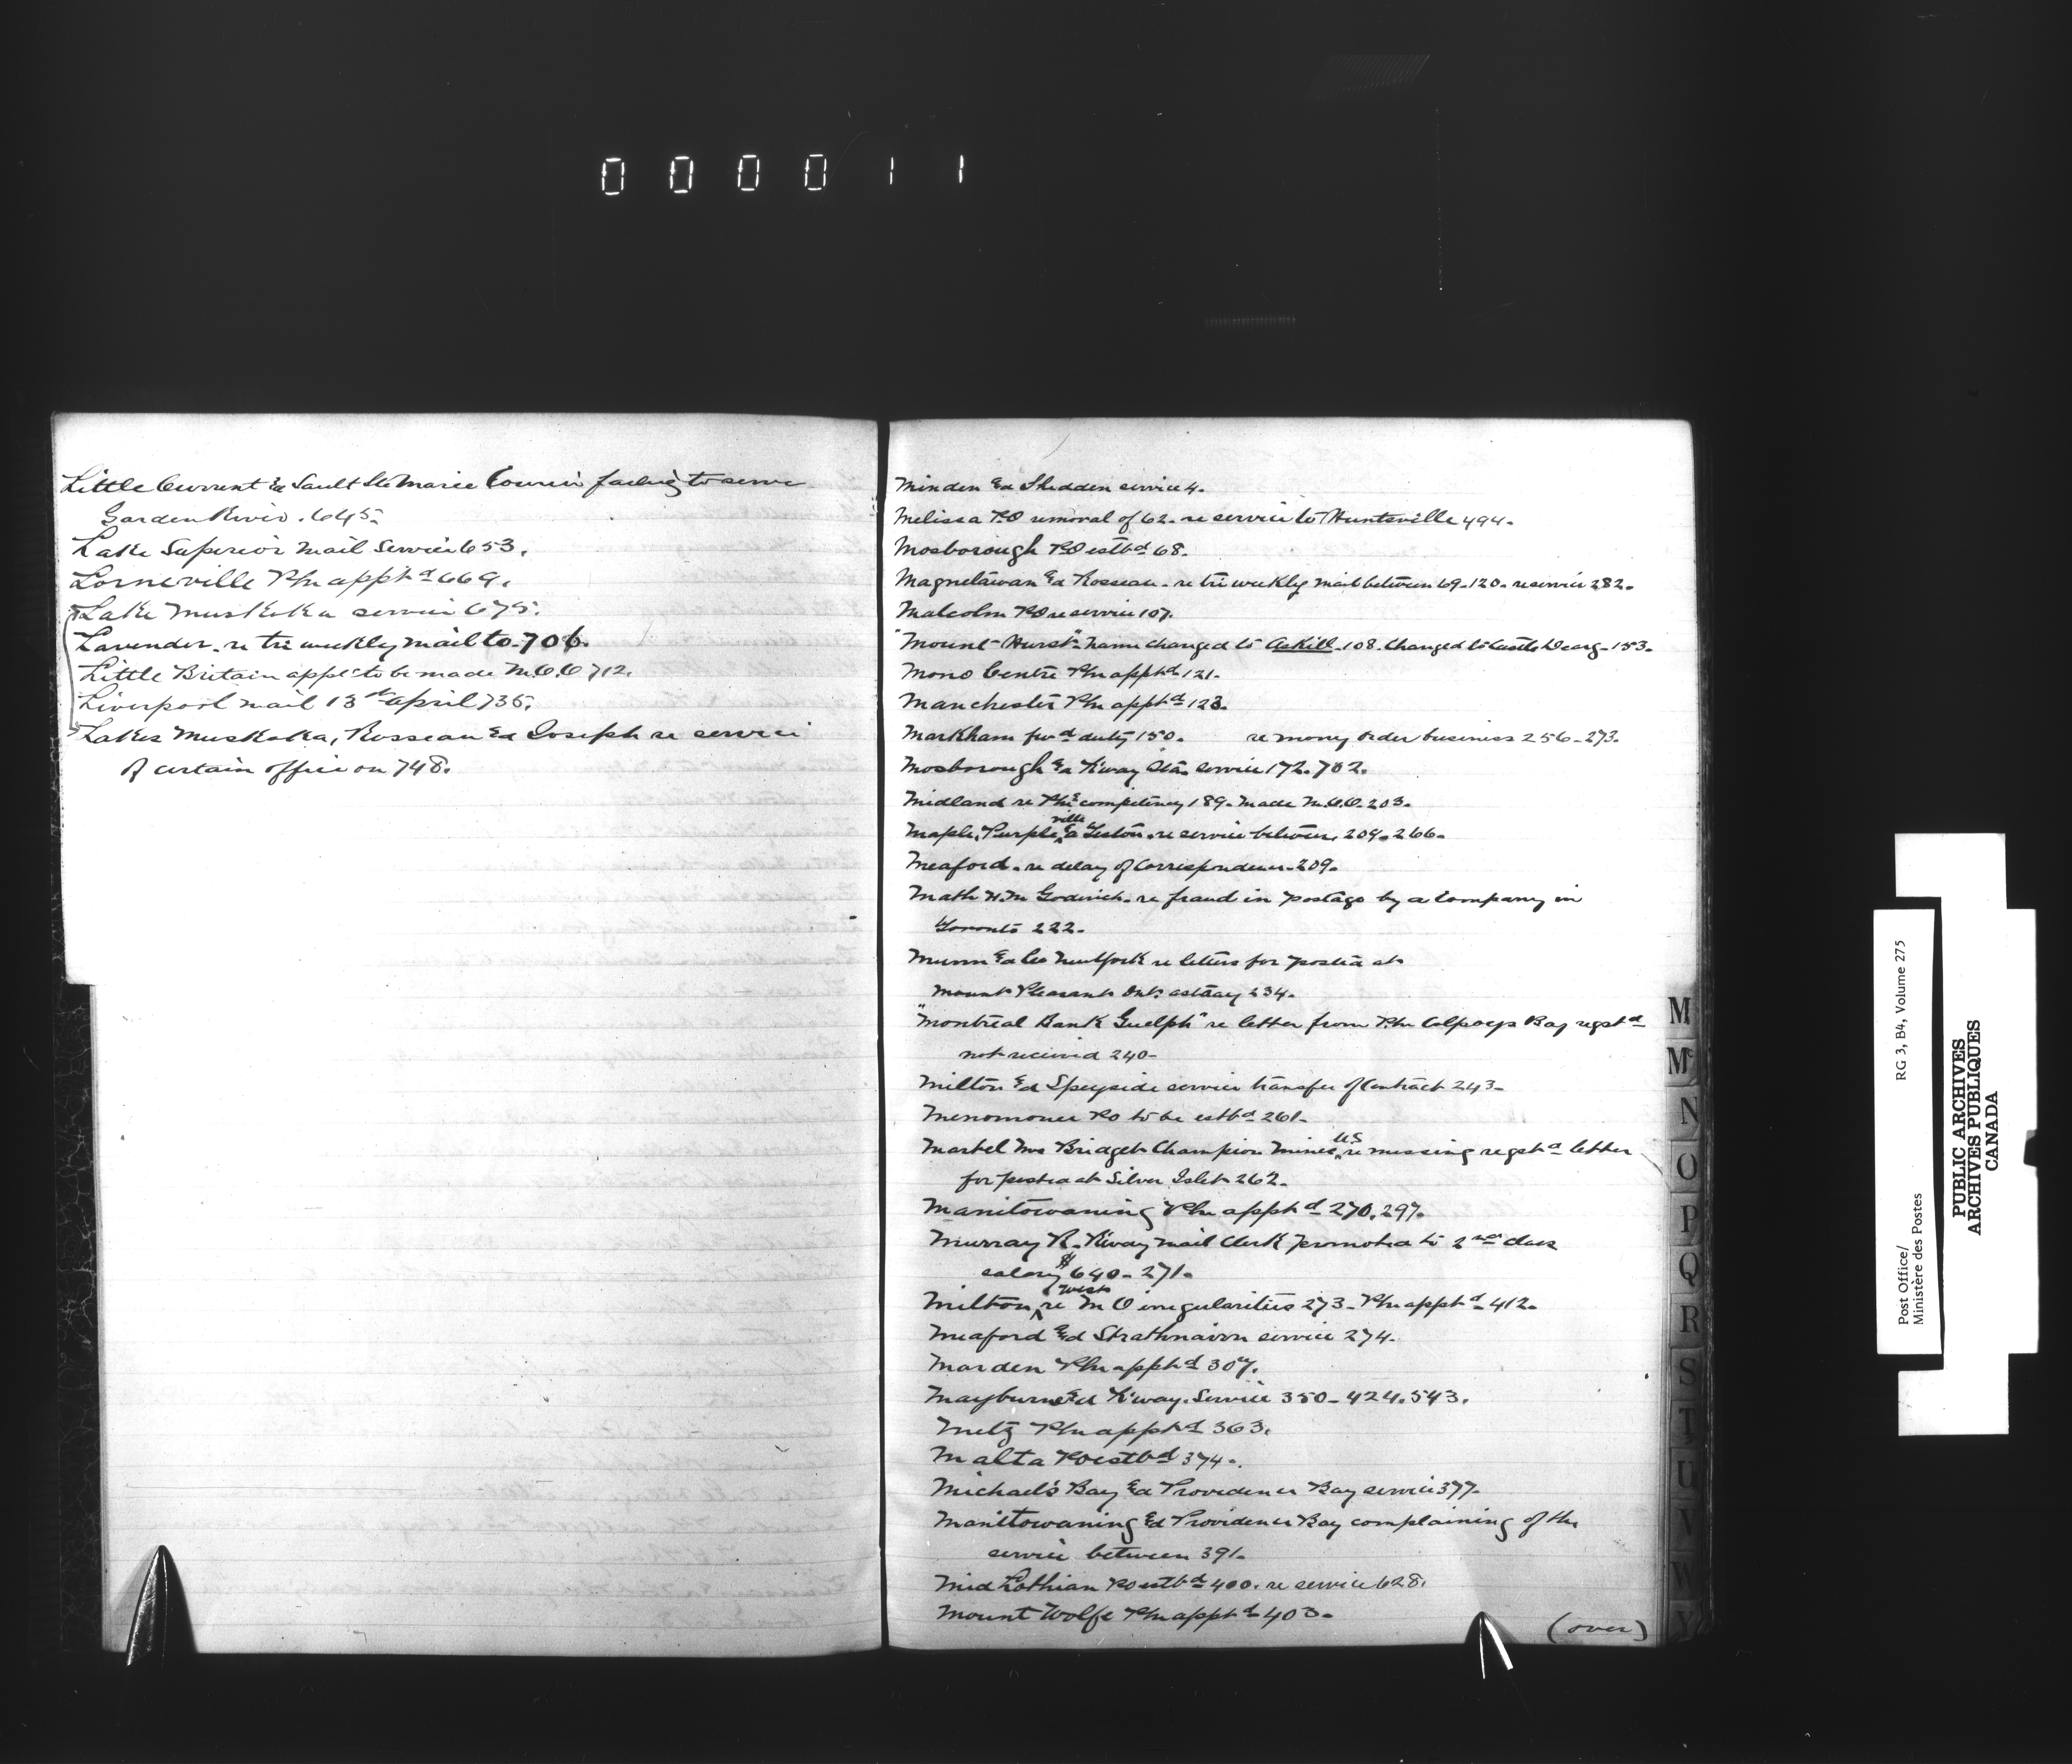 000011
Little Current & Sault Ste Marie Courier failing to serve
Garden River. 645.
Lake Superior Mail Service 653.
Lorneville Pm appt^d 669.
Lake Muskoka service 675.
Lavender. re tri weekly mail to 706.
Little Britain appt to be made M.O.O 712.
Liverpool mail 13th April 735.
Lakes Muskoka, Rosseau & Joseph re service
of certain offices on 748.
Minden & Shedden service 4.
Melissa P.O removal of 62. re service to Huntsville 494.
Mosborough P.O estb^d 68.
Magnetawan & Rosseau - re tri weekly mail between 69-120. re service 282.
Malcolm P.O re service 107.
"Mount Hurst" name changed to Askill 108. Changed to Castle Dearg - 153.
Mono Centre Pm appt^d 121.
Manchester Pm appt^d 123.
Markham fw^d duty 150. re money order business 256-273.
Mosborough & R'way Sta. service 172. 702.
Midland re Pm's competency 189. Made M.O.O. 203.
Maple, Purpleville & Teston. re service between, 204-266.
Meaford. re delay of Correspondence. 209.
Math H.M Goderich. re fraud in postage by a Company in
Toronto 222.
Munn & Co New York re letters for posted at
Mount Pleasant Ont. astray 234.
"Montreal Bank Guelph" re letter from Pm Colpoys Bay regst^d
not received 240-
Milton & Speyside service transfer of Contract 243-
Menomonee PO to be estb^d 261-
Martel Mrs Bridget Champion Mines U.S re missing regst^d letter
for posted at Silver Islet 262.
Manitowaning Pm appt^d 270, 297.
Murray R. R'way Mail Clerk promoted to 2nd class
salary $640 - 271.
Milton West re M O irregularities 273 - Pm appt^d 412.
Meaford & Strathnairn service 274.
Marden Pm appt^d 307.
Mayburne & R'way. Service 350-424.543.
Metz Pm appt^d 363.
Malta PO estb^d 374-.
Michael's Bay & Providence Bay service 377-
Manitowaning & Providence Bay complaining of the
service between 391-
Mid Lothian PO estb^d 400. re service 628.
Mount Wolfe Pm appt^d 403-
(over)
M
Mc
N
O
P
Q
R
S
T
U
V
W
Y
Post Office/
Ministère des Postes
RG 3, B4, Volume 275
PUBLIC ARCHIVES
ARCHIVES PUBLIQUES
CANADA